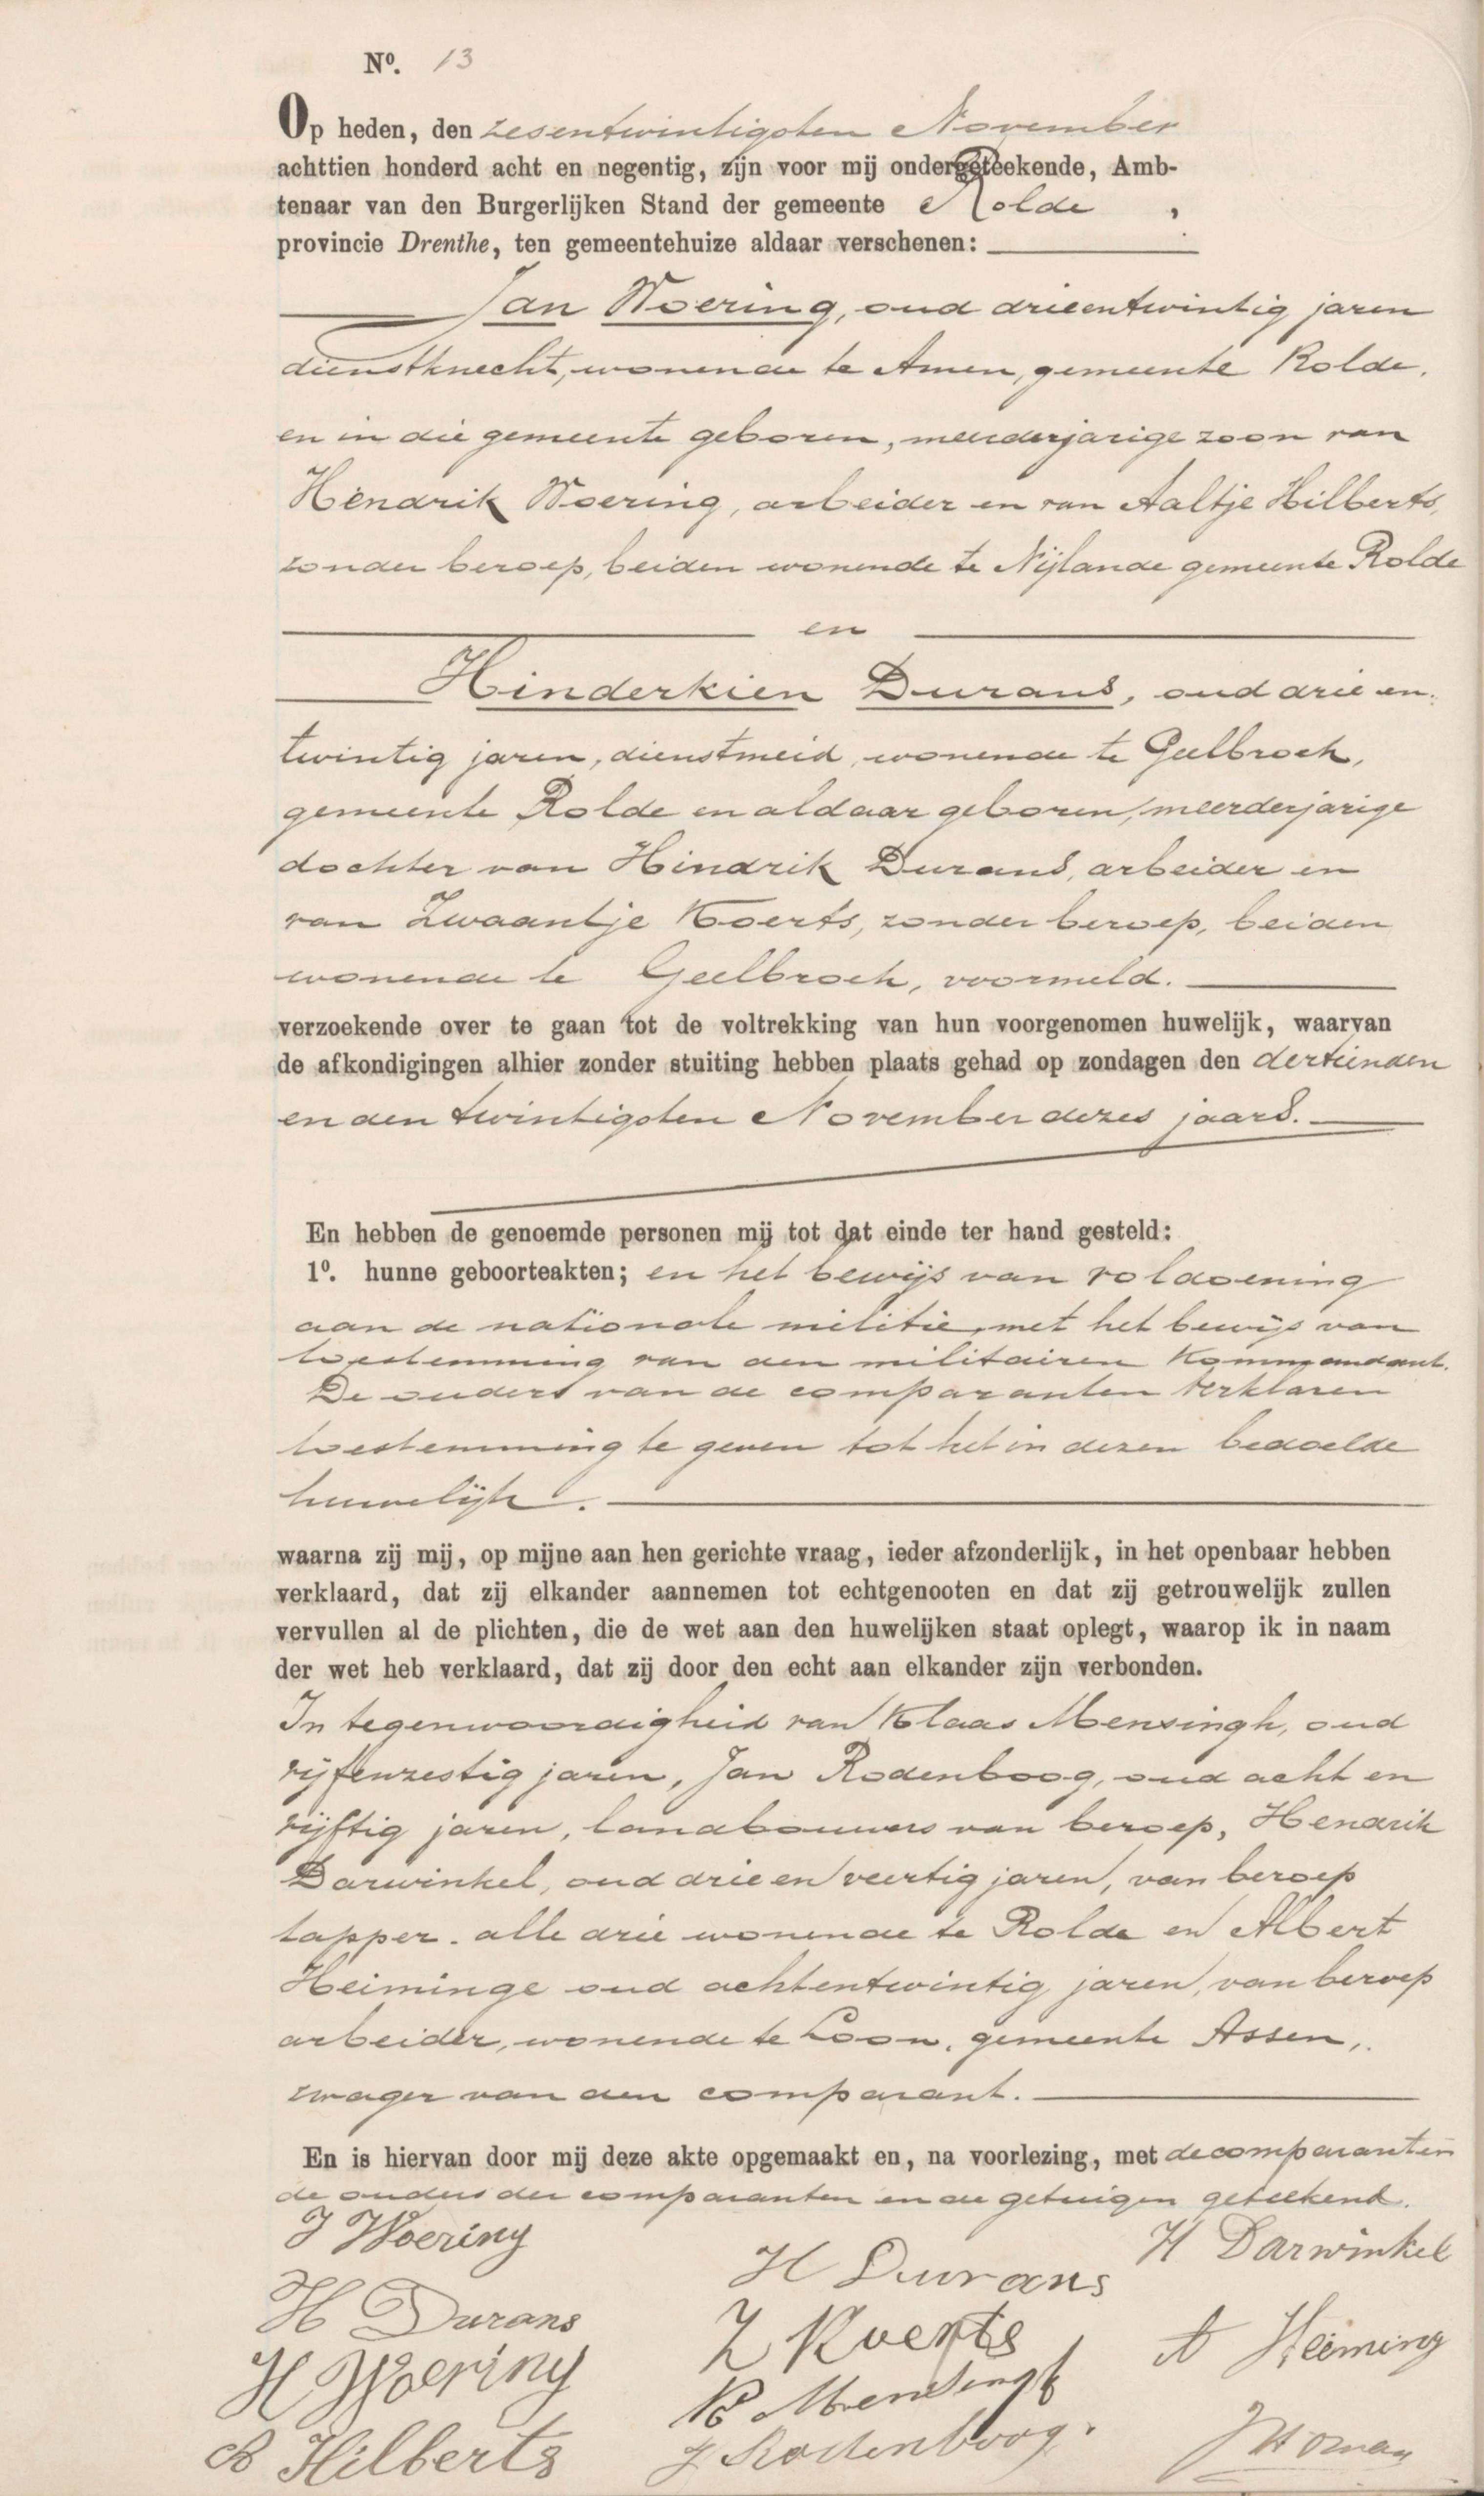 Nº. 13
Op heden, den zesentwintigsten November
achttien honderd acht en negentig, zijn voor mij ondergeteekende, Amb-
tenaar van den Burgerlijken Stand der gemeente Rolde,
provincie Drenthe, ten gemeentehuize aldaar verschenen:
Jan Woering, oud drieentwintig jaren
dienstknecht, wonende te Amen, gemeente Rolde,
en in die gemeente geboren, meerderjarige zoon van
Hendrik Woering, arbeider en van Aaltje Hilberts,
zonder beroep, beiden wonende te Nijlande gemeente Rolde
en
Hinderkien Durans, oud drie en
twintig jaren, dienstmeid, wonende te Geelbroek,
gemeente Rolde en aldaar geboren, meerderjarige
dochter van Hindrik Durans, arbeider en
van Zwaantje Koerts, zonder beroep, beiden
wonende te Geelbroek, voormeld.
verzoekende over te gaan tot de voltrekking van hun voorgenomen huwelijk, waarvan
de afkondigingen alhier zonder stuiting hebben plaats gehad op zondagen den dertienden
en den twintigsten November dezes jaars.
En hebben de genoemde personen mij tot dat einde ter hand gesteld:
1º. hunne geboorteakten; en het bewijs van voldoening
aan de nationale militie, met het bewijs van
toestemming van den militairen Kommandant.
De ouders van de comparanten verklaren
toestemming te geven tot het in dezen bedoelde
huwelijk.
waarna zij mij, op mijne aan hen gerichte vraag, ieder afzonderlijk, in het openbaar hebben
verklaard, dat zij elkander aannemen tot echtgenooten en dat zij getrouwelijk zullen
vervullen al de plichten, die de wet aan den huwelijken staat oplegt, waarop ik in naam
der wet heb verklaard, dat zij door den echt aan elkander zijn verbonden.
In tegenwoordigheid van Klaas Mensingh, oud
vijfenzestig jaren, Jan Rodenboog, oud acht en
vijftig jaren, landbouwers van beroep, Hendrik
Darwinkel, oud drie en veertig jaren, van beroep
tapper. alle drie wonende te Rolde en Albert
Heiminge oud achtentwintig jaren, van beroep
arbeider, wonende te Loon, gemeente Assen,
zwager van den comparant.
En is hiervan door mij deze akte opgemaakt en, na voorlezing, met de comparanten
de ouders der comparanten en de getuigen geteekend.
J Woering
H Durans
H Darwinkel
H Durans
Z Koerts
A Heiming
H Woering
K Mensingh
A Hilberts
J Rodenboog.
J Homan